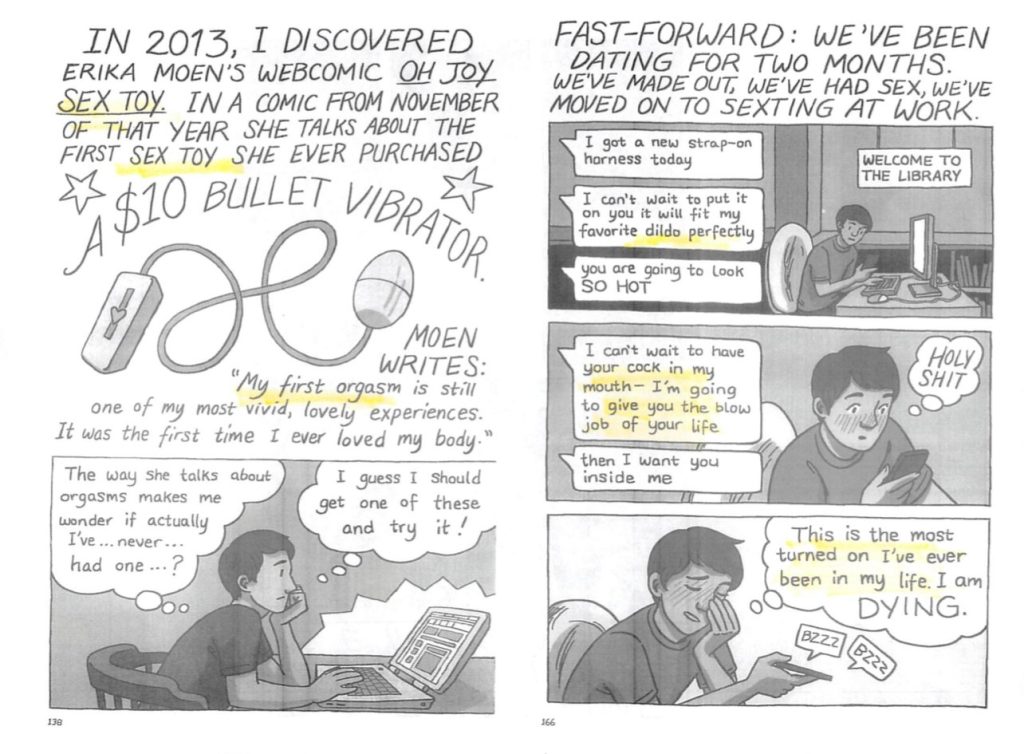 IN 2013, I DISCOVERED
ERIKA MOEN'S WEBCOMIC OH JOY
SEX TOY. IN A COMIC FROM NOVEMBER
OF THAT YEAR SHE TALKS ABOUT THE
FIRST SEX TOY SHE EVER PURCHASED
A $10 BULLET VIBRATOR.
MOEN
WRITES:
"My first orgasm is still
one of my most vivid, lovely experiences.
It was the first time I ever loved my body."
The way she talks about
orgasms makes me
wonder if actually
I've... never...
had one...?
I guess I should
get one of these
and try it!
138
FAST-FORWARD: WE'VE BEEN
DATING FOR TWO MONTHS.
WE'VE MADE OUT, WE'VE HAD SEX, WE'VE
MOVED ON TO SEXTING AT WORK.
I got a new strap-on
harness today
I can't wait to put it
on you it will fit my
favorite dildo perfectly
you are going to look
SO HOT
WELCOME TO
THE LIBRARY
I can't wait to have
your cock in my
mouth– I'm going
to give you the blow
job of your life
then I want you
inside me
HOLY
SHIT
This is the most
turned on I've ever
been in my life. I am
DYING.
BZZZ
BZZZ
166